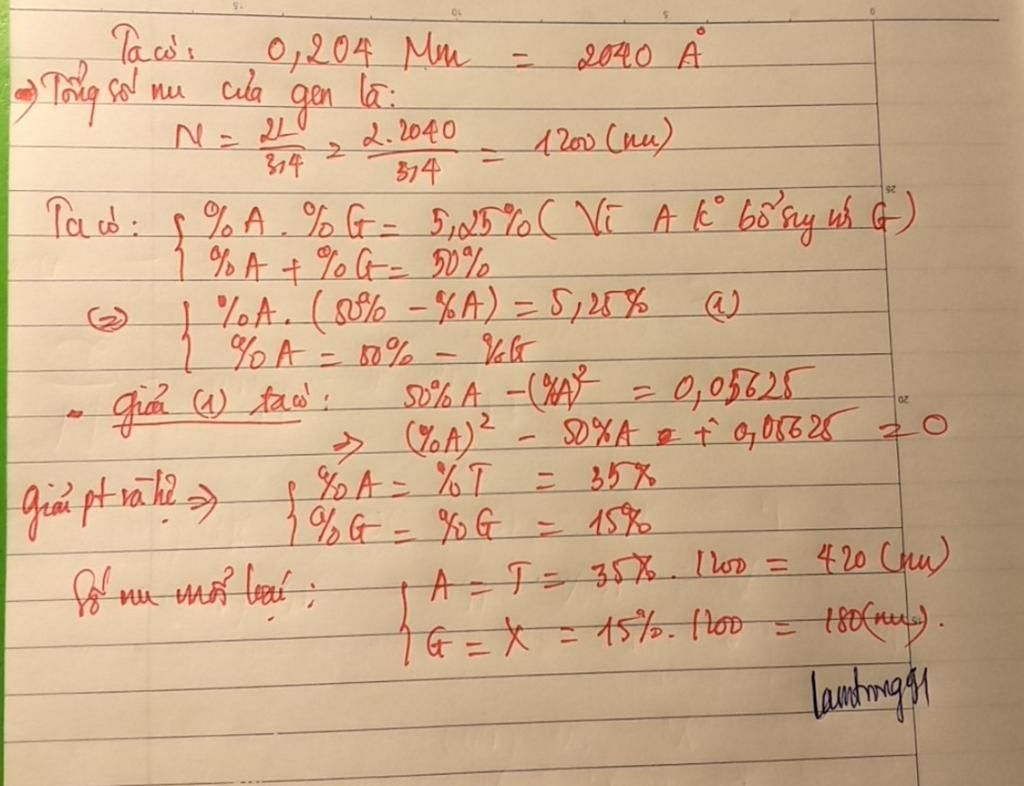 Ta có: 0,204 Mm = 2040 Å
=> Tổng số nu của gen là:
N = 2L/3,4 = 2.2040/3,4 = 1200 (nu)
Ta có: { %A . %G = 5,25% ( Vì A k° bổ sung với G)
%A + %G = 50%
(=) { %A. (50% - %A) = 5,25% (1)
%A = 50% - %G
- giải (1) ta có: 50%A - (%A)² = 0,05625
=> (%A)² - 50%A + 0,05625 = 0
Giải pt và hệ => { %A = %T = 35%
%G = %G = 15%
Số nu mỗi loại: { A = T = 35%. 1200 = 420 (nu)
G = X = 15%. 1200 = 180 (nu).